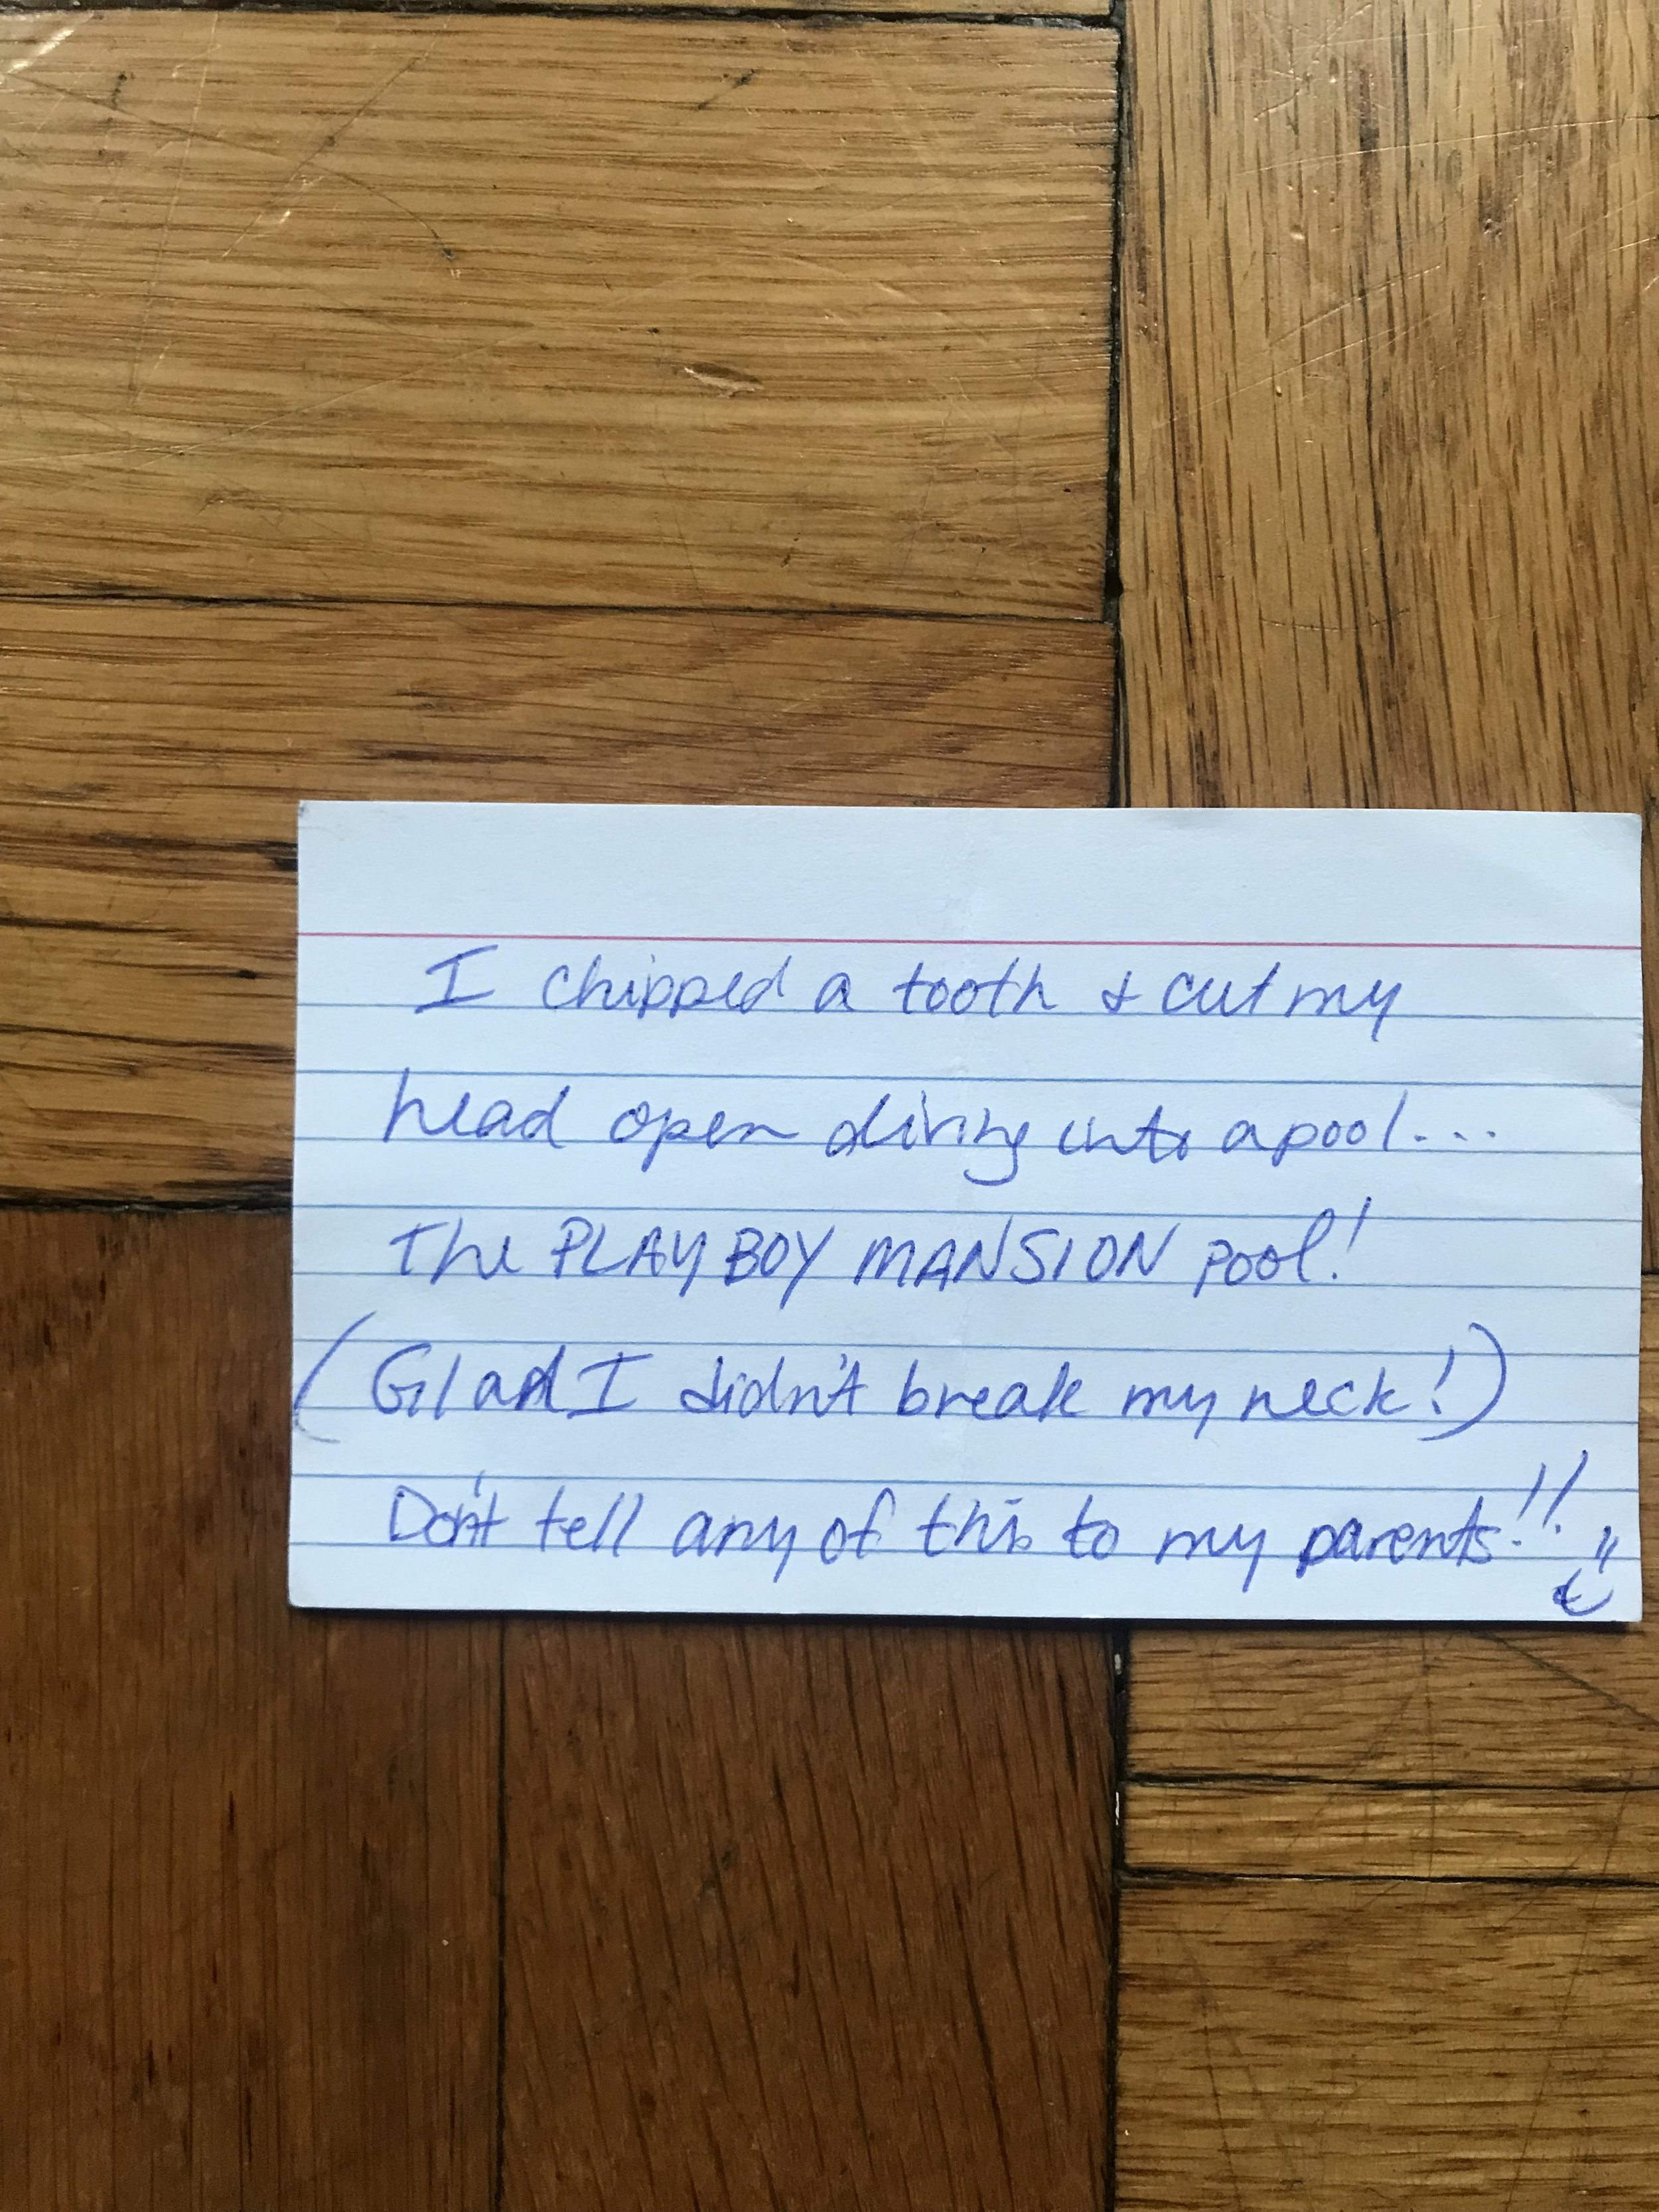 I chipped a tooth & cut my
head open diving into a pool...
The PLAYBOY MANSION pool!
(Glad I didn't break my neck!)
Don't tell any of this to my parents!!